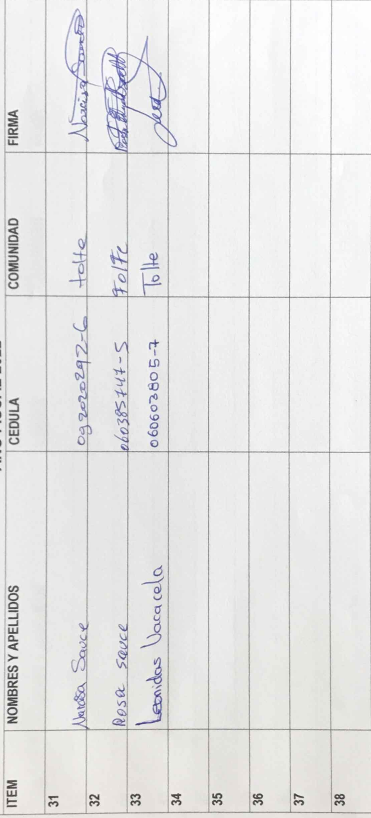 ITEM NOMBRES Y APELLIDOS CEDULA COMUNIDAD FIRMA
31
32 Narcisa Sauce 092020292-6 tolte Narcisa
33 Rosa Sauce 060385747-5 Tolte
34 Leonidas Vacacela 060603805-7 Tolte
35
36
37
38